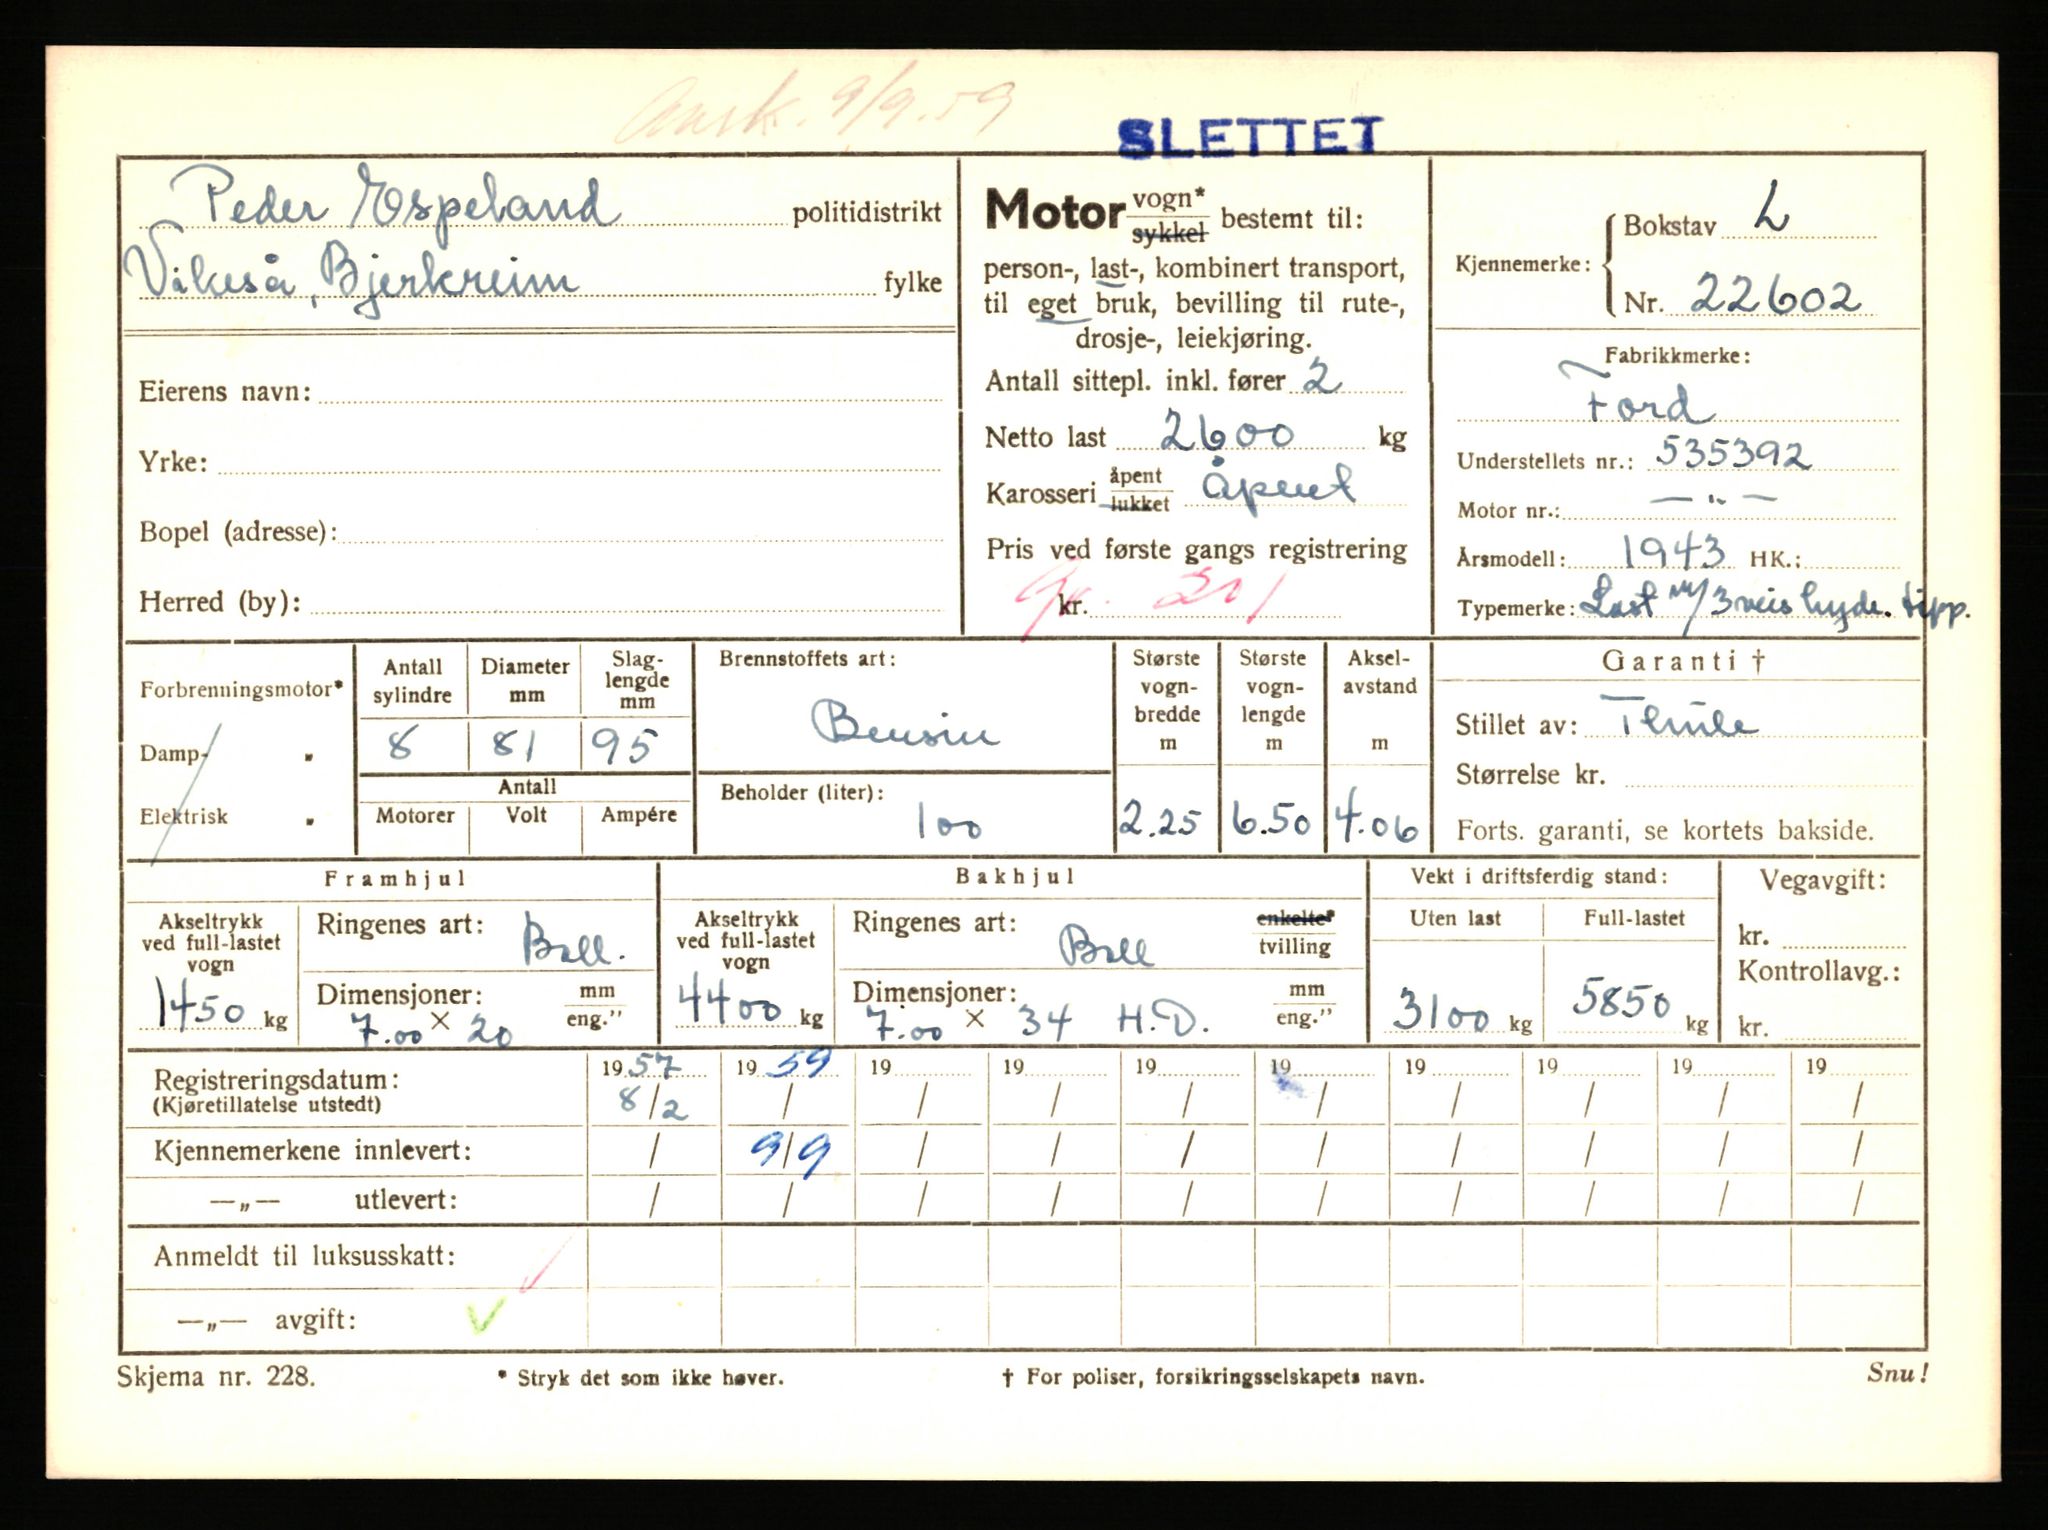 9/9.59
SLETTET
Peder Espeland politidistrikt
Vikeså, Bjerkreim fylke
Eierens navn:
Yrke:
Bopel (adresse):
Herred (by):
Motor vogn* sykkel bestemt til:
person-, last-, kombinert transport,
til eget bruk, bevilling til rute-,
drosje-, leiekjøring.
Antall sittepl. inkl. fører 2
Netto last 2600 kg
Karosseri åpent lukket Åpent
Pris ved første gangs registrering
kr. 201
Kjennemerke: Bokstav L
Nr. 22602
Fabrikkmerke:
Ford
Understellets nr.: 535392
Motor nr.: — " —
Årsmodell: 1943 HK.:
Typemerke: Last m/3veis hydr. tipp.
Forbrenningsmotor*
Damp- "
Elektrisk "
Antall sylindre Diameter mm Slag-lengde mm
8 81 95
Antall
Motorer Volt Ampére
Brennstoffets art:
Bensin
Beholder (liter):
100
Største vogn-bredde m
2.25
Største vogn-lengde m
6.50
Aksel-avstand m
4.06
Garanti †
Stillet av: Thule
Størrelse kr.
Forts. garanti, se kortets bakside.
Framhjul
Akseltrykk ved full-lastet vogn
1450 kg
Ringenes art: Ball.
Dimensjoner: mm eng."
7.00 × 20
Bakhjul
Akseltrykk ved full-lastet vogn
4400 kg
Ringenes art: Ball enkelte* tvilling
Dimensjoner: mm eng."
7.00 × 34 H.D.
Vekt i driftsferdig stand:
Uten last Full-lastet
3100 kg 5850 kg
Vegavgift:
kr.
Kontrollavg.:
kr.
Registreringsdatum: 19 57 19 59 19 19 19 19 19 19 19 19
(Kjøretillatelse utstedt) 8/2 / / / / / / / / /
Kjennemerkene innlevert: / 9/9 / / / / / / / /
—„— utlevert: / / / / / / / / / /
Anmeldt til luksusskatt:
—„— avgift:
Skjema nr. 228. * Stryk det som ikke høver. † For poliser, forsikringsselskapets navn. Snu!